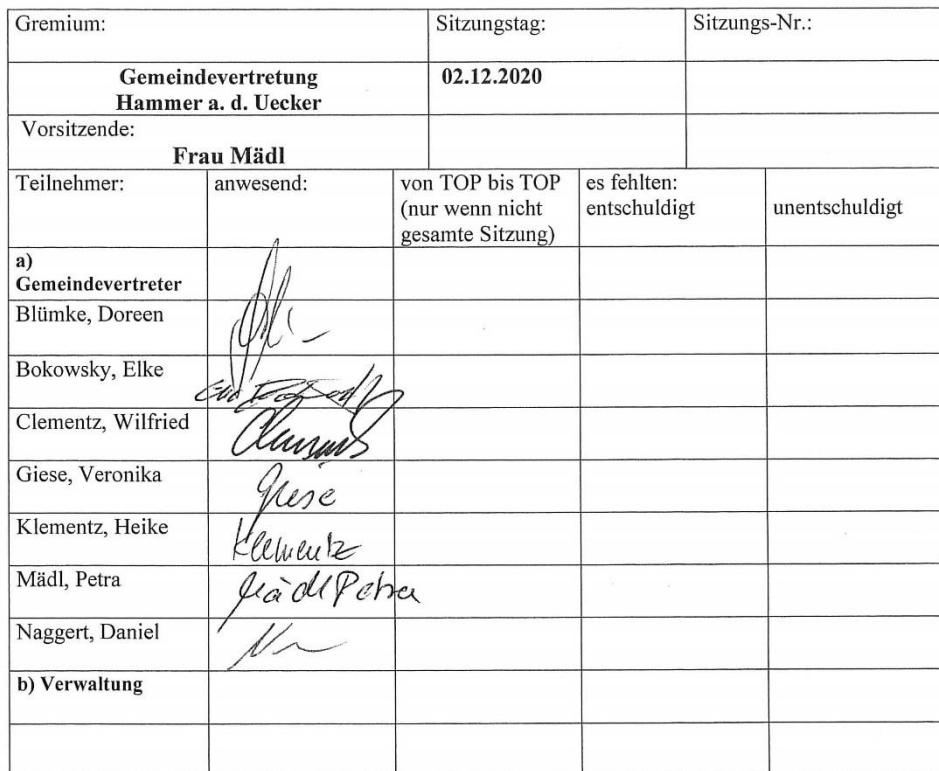 Gremium: Sitzungstag: Sitzungs-Nr.:
Gemeindevertretung 02.12.2020
Hammer a. d. Uecker
Vorsitzende:
Frau Mädl
Teilnehmer: anwesend: von TOP bis TOP es fehlten:
(nur wenn nicht entschuldigt unentschuldigt
gesamte Sitzung)
a)
Gemeindevertreter
Blümke, Doreen
Bokowsky, Elke
Clementz, Wilfried
Giese, Veronika Giese
Klementz, Heike Klementz
Mädl, Petra Mädl Petra
Naggert, Daniel
b) Verwaltung